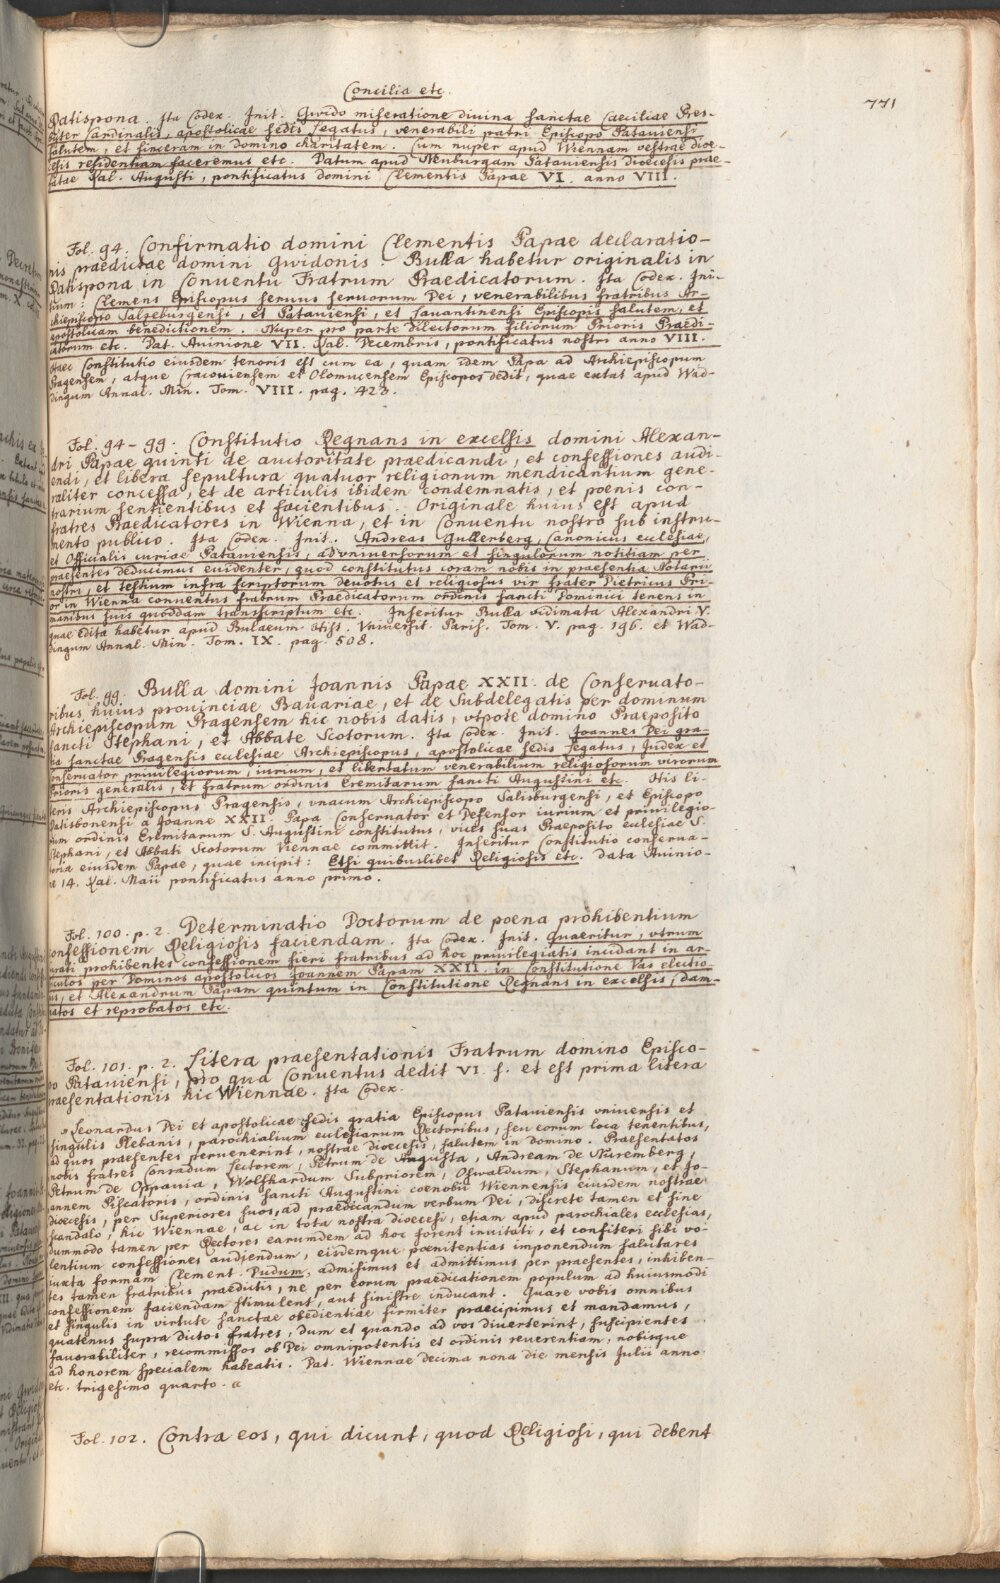 Concilia etc.
771
Ratispona. Ita Codex. Init. Gwido miseratione divina sanctae Caeciliae Pres-
biter Cardinalis, apostolicae sedis legatus, venerabili patri Episcopo Pataviensi
salutem, et sinceram in Domino charitatem. Cum nuper apud Wiennam vestrae dioe-
cesis residentiam faceremus etc. Datum apud Neuburgam Pataviensis dioecesis prae-
fatae Kal. Augusti, pontificatus domini Clementis Papae VI. anno VIII.
Fol. 94. Confirmatio domini Clementis Papae declaratio-
nis praedictae domini Gwidonis. Bulla habetur originalis in
Ratispona in Conventu Fratrum Praedicatorum. Ita Codex. Ini-
tium: Clemens Episcopus servus servorum Dei, venerabilibus fratribus Ar-
chiepiscopo Salzeburgensi, et Pataviensi, et Lavantinensi Episcopis salutem, et
apostolicam benedictionem. Nuper pro parte dilectorum filiorum Prioris Praedi-
catorum etc. Dat. Avinione VII. Kal. Decembris, pontificatus nostri anno VIII.
Haec Constitutio eiusdem tenoris est cum ea, quam idem Papa ad Archiepiscopum
Pragensem, atque Cracoviensem et Olomucensem Episcopos dedit, quae extat apud Wad-
dingum Annal. Min. Tom. VIII. pag. 423.
Fol. 94-99. Constitutio Regnans in excelsis domini Alexan-
dri Papae quinti de auctoritate praedicandi, et confessiones audi-
endi, et libera sepultura quatuor religionum mendicantium gene-
raliter concessa, et de articulis ibidem condemnatis, et poenis con-
trarium sentientibus et facientibus. Originale huius est apud
fratres Praedicatores in Wienna, et in Conventu nostro sub instru-
mento publico. Ita Codex. Init. Andreas Gullerberg, Canonicus ecclesiae,
et Officialis curiae Pataviensis, ad vniversorum et singulorum notitiam per
praesentes deducimus evidenter, quod constitutus coram nobis in praesentia Notarii
nostri, et testium infra scriptorum devotus et religiosus vir frater Dietricus Pri-
or in Wienna conventus fratrum Praedicatorum ordinis sancti Dominici tenens in
manibus suis quoddam transscriptum etc. Inseritur Bulla vidimata Alexandri V.
quae edita habetur apud Bulaeum Hist. Vniversit. Paris. Tom. V. pag. 196. et Wad-
dingum Annal. Min. Tom. IX. pag. 508.
Fol. 99. Bulla domini Joannis Papae XXII. de Conservato-
ribus huius provinciae Bavariae, et de Subdelegatis per dominum
Archiepiscopum Pragensem hic nobis datis, vtpote domino Praeposito
sancti Stephani, et Abbate Scotorum. Ita Codex. Init. Joannes Dei gra-
tia sanctae Pragensis ecclesiae Archiepiscopus, apostolicae sedis legatus, Judex et
Conservator privilegiorum, iurium, et libertatum venerabilium religiosorum virorum
Prioris generalis, et fratrum ordinis Eremitarum sancti Augustini etc. His li-
teris Archiepiscopus Pragensis, vnacum Archiepiscopo Salisburgensi, et Episcopo
Ratisbonensi a Joanne XXII. Papa Conservator et Defensor iurium et privilegio-
rum ordinis Eremitarum S. Augustini constitutus, vices suas Praeposito ecclesiae S.
Stephani, et Abbati Scotorum Viennae committit. Inseritur Constitutio conserva-
toria eiusdem Papae, quae incipit: Etsi quibuslibet Religiosis etc. Data Avinio-
ne 14. Kal. Maii pontificatus anno primo.
Fol. 100. p. 2. Determinatio Doctorum de poena prohibentium
confessionem Religiosis faciendam. Ita Codex. Init. Quaeritur, vtrum
curati prohibentes confessionem fieri fratribus ad hoc privilegiatis incidant in ar-
ticulos per Dominos apostolicos Joannem Papam XXII. in Constitutione Vas electio-
nis, et Alexandrum Papam quintum in Constitutione Regnans in excelsis, dam-
natos et reprobatos etc.
Fol. 101. p. 2. Litera praesentationis Fratrum domino Episco-
po Pataviensi, pro qua Conventus dedit VI. s. et est prima litera
praesentationis hic Wiennae. Ita Codex.
» Leonardus Dei et apostolicae sedis gratia Episcopus Pataviensis vniversis et
singulis Plebanis, parochialium ecclesiarum Rectoribus, seu eorum loca tenentibus,
ad quos praesentes pervenerint, nostrae dioecesis, salutem in Domino. Praesentatos
nobis fratres Conradum Lectorem, Petrum de Augusta, Andream de Nuremberg,
Petrum de Oppavia, Wolfhardum Subpriorem, Oswaldum, Stephanum, et Jo-
annem Piscatoris, ordinis sancti Augustini coenobii Wiennensis eiusdem nostrae
dioecesis, per Superiores suos, ad praedicandum verbum Dei, discrete tamen et sine
scandalo, hic Wiennae, ac in tota nostra dioecesi, etiam apud parochiales ecclesias,
dummodo tamen per Rectores earumdem ad hoc forent invitati, et confiteri sibi vo-
lentium confessiones audiendum, eisdemque poenitentias imponendum salutares
iuxta formam Clement. Dudum, admisimus et admittimus per praesentes, inhiben-
tes tamen fratribus praedictis, ne per eorum praedicationem populum ad huiusmodi
confessionem faciendam stimulent, aut sinistre inducant. Quare vobis omnibus
et singulis in virtute sanctae obedientiae firmiter praecipimus et mandamus,
quatenus supra dictos fratres, dum et quando ad vos diverterint, suscipientes
favorabiliter, recommissos ob Dei omnipotentis et ordinis reverentiam, nobisque
ad honorem specialem habeatis. Dat. Wiennae decima nona die mensis Julii anno
etc. trigesimo quarto. «
Fol. 102. Contra eos, qui dicunt, quod Religiosi, qui debent